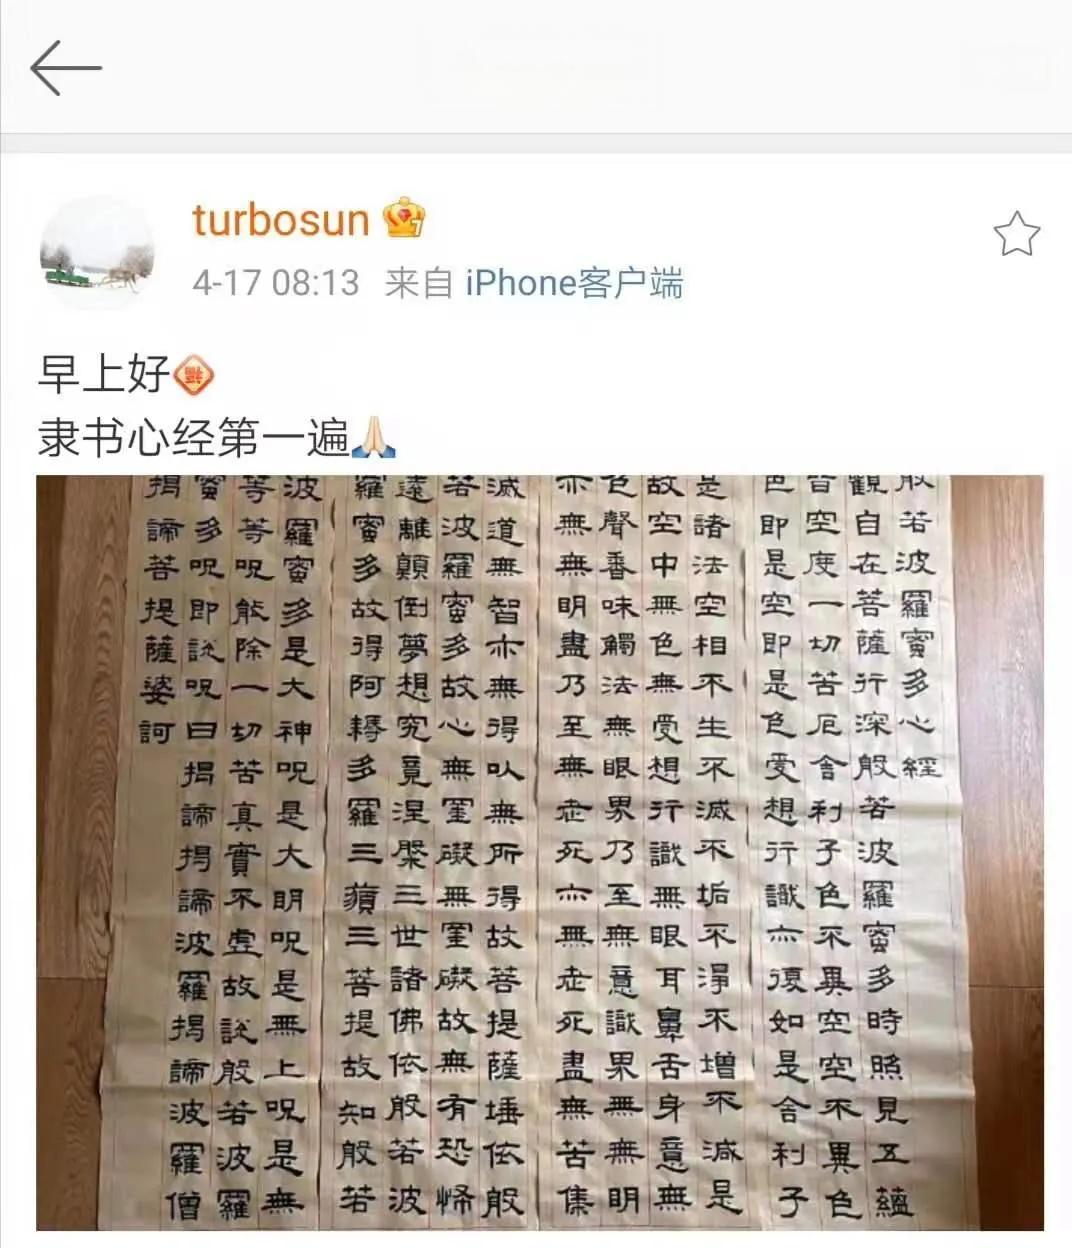 turbosun
4-17 08:13 来自 iPhone客户端
早上好
隶书心经第一遍
般若波羅蜜多心經
觀自在菩薩行深般若波羅蜜多時照見五蘊
皆空度一切苦厄舍利子色不異空空不異色
色即是空即是色受想行識亦復如是舍利子
是諸法空相不生不滅不垢不淨不增不減是
故空中無色無受想行識無眼耳鼻舌身意無
色聲香味觸法無眼界乃至無意識界無無明
亦無無明盡乃至無老死亦無老死盡無苦集
滅道無智亦無得以無所得故菩提薩埵依般
若波羅蜜多故心無罣礙無罣礙故無有恐怖
遠離顛倒夢想究竟涅槃三世諸佛依般若波
羅蜜多故得阿耨多羅三藐三菩提故知般若
波羅蜜多是大神呪是大明呪是無上呪是無
等等呪能除一切苦真實不虛故說般若波羅
蜜多呪即說呪曰揭諦揭諦波羅揭諦波羅僧
揭諦菩提薩婆訶